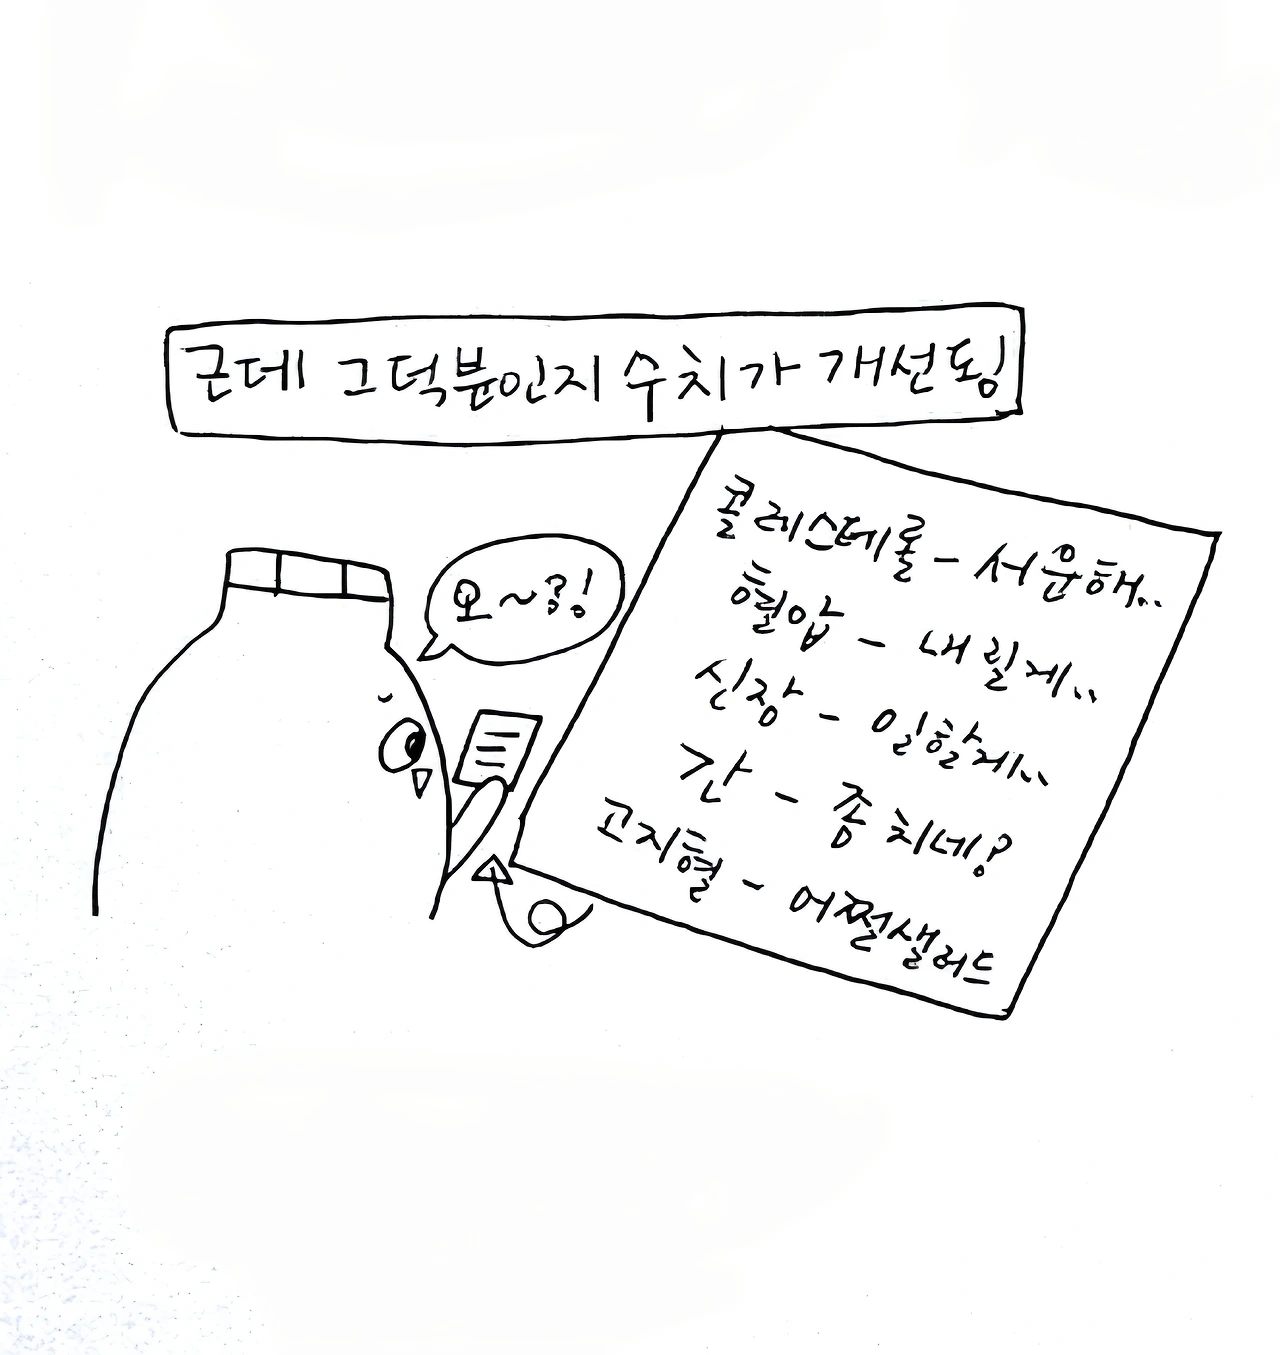 근데 그덕분인지 수치가 개선됭
오~?!
콜레스테롤 - 서운해..
혈압 - 내릴게..
신장 - 일할게..
간 - 좀 치네?
고지혈 - 어쩔샐러드